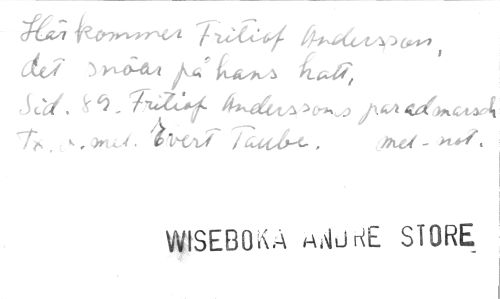 Här kommer Fritiof Andersson,
det snöar på hans hatt,
Sid. 89. Fritiof Anderssons paradmarsch
Tx. o. mel. Evert Taube. mel-not.
WISEBOKA ANDRE STORE